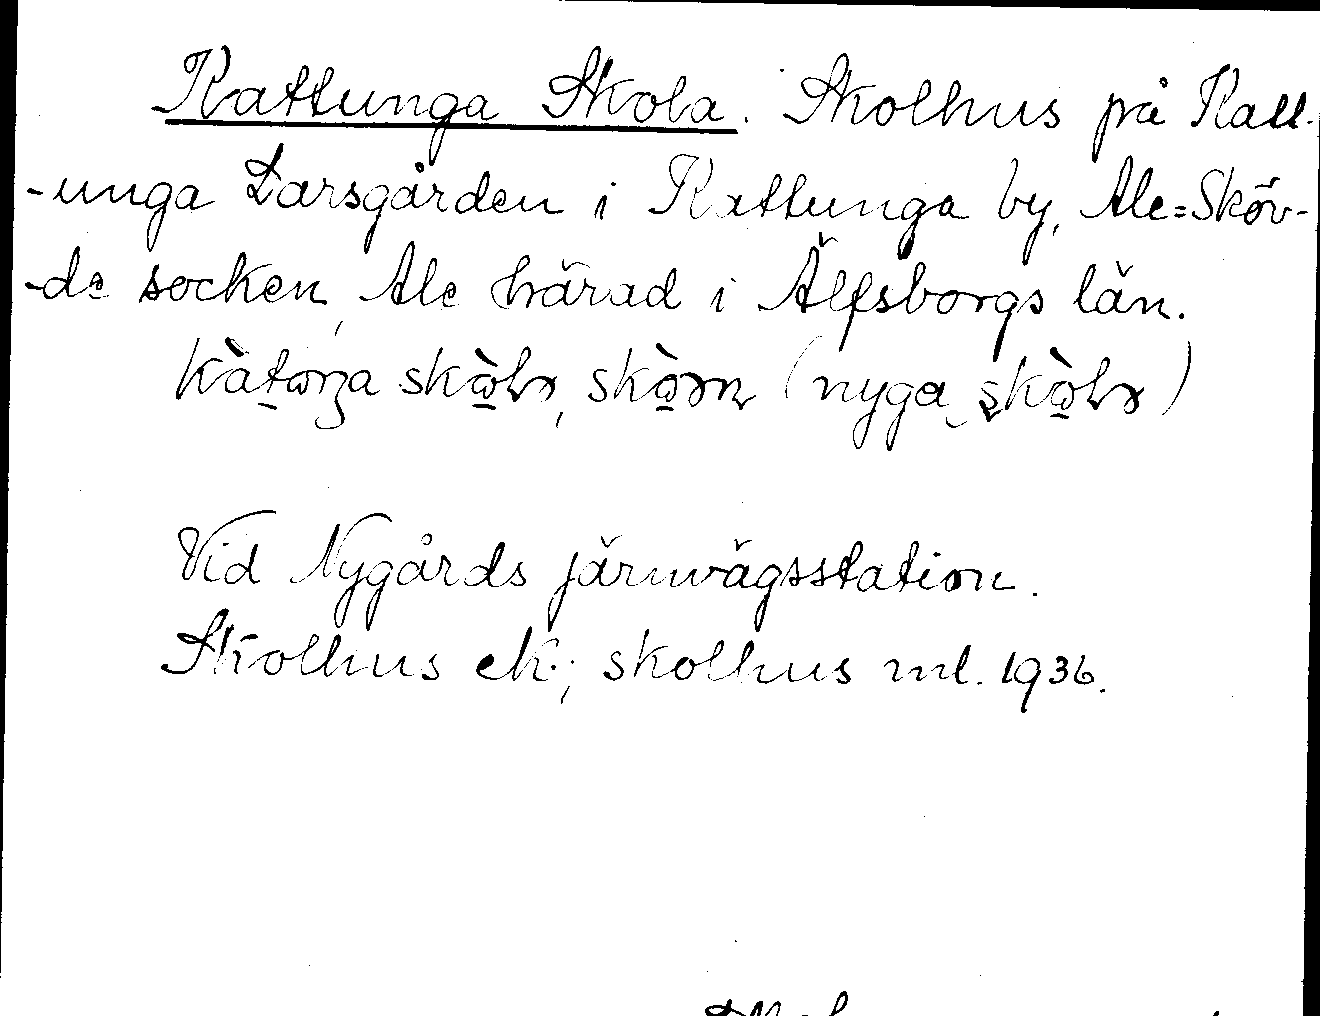 Kattunga Skola. Skolhus på Katt-
-unga Larsgården i Kattunga by, Ale=Sköv-
-de socken, Ale härad i Älfsborgs län.
(nyga
Vid Nygårds järnvägsstation.
Skolhus ek.; skolhus ml. 1936.